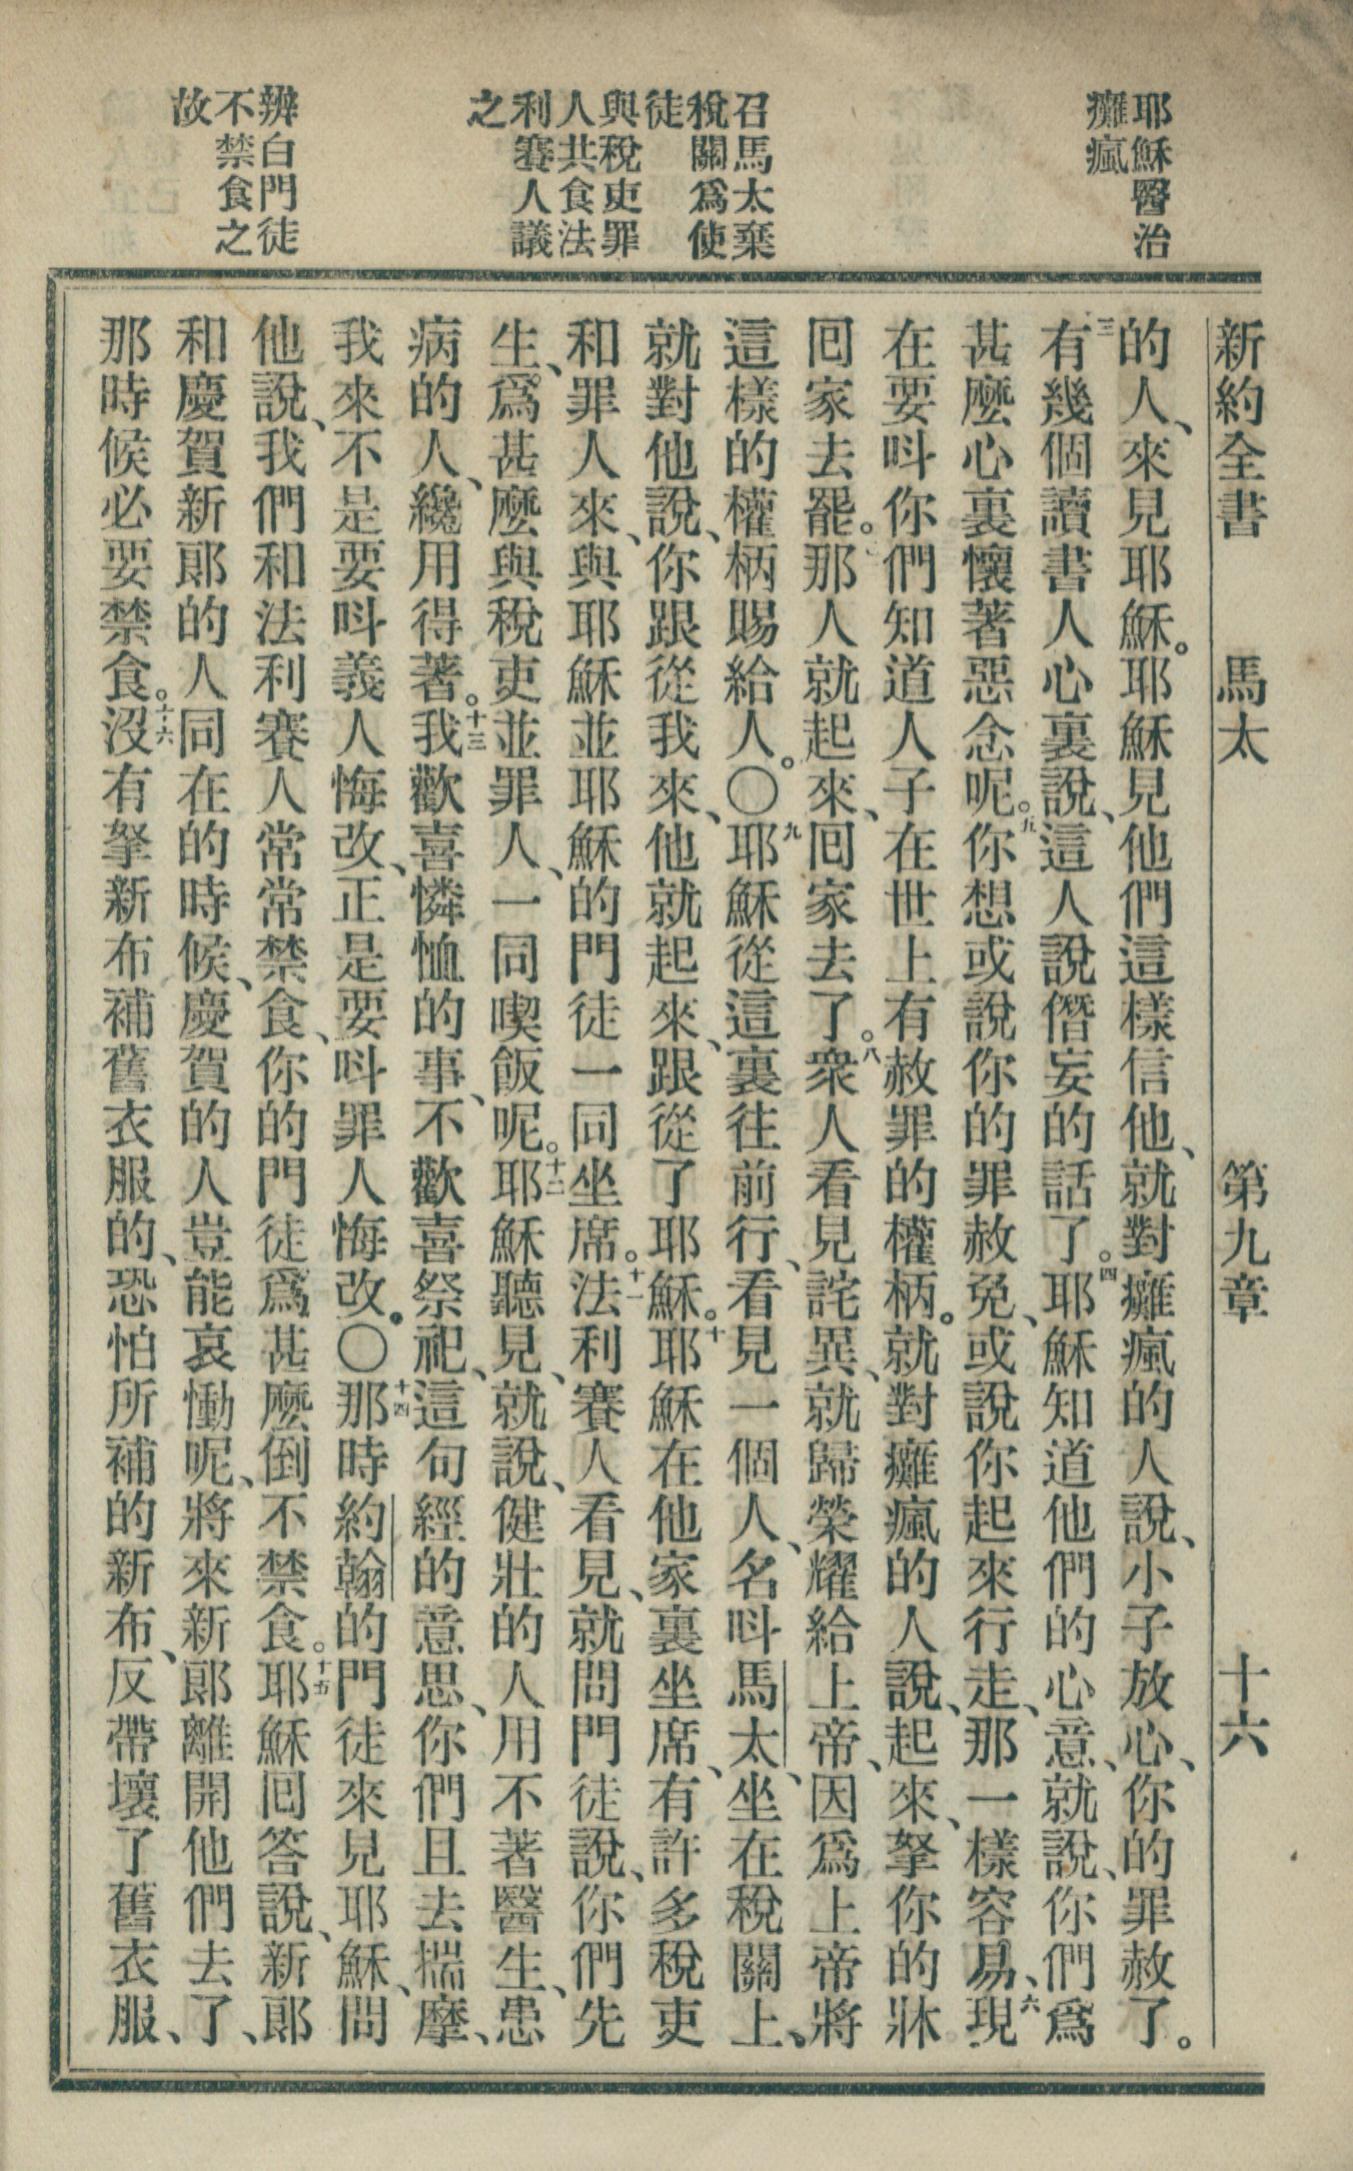 耶穌醫治
癱瘋
召馬太棄
稅關爲使
徒
與稅吏罪
人共食法
利賽人議
之
辨白門徒
不禁食之
故
新約全書 馬太 第九章 十六
的人、來見耶穌。耶穌見他們這樣信他、就對癱瘋的人說、小子放心、你的罪赦了。
三有幾個讀書人心裏說、這人說僭妄的話了。四耶穌知道他們的心意、就說、你們爲
甚麼心裏懷著惡念呢。五你想或說你的罪赦免、或說你起來行走、那一樣容易、六現
在要呌你們知道人子在世上有赦罪的權柄。就對癱瘋的人說、起來、拏你的牀
囘家去罷。那人就起來、囘家去了。八衆人看見詫異、就歸榮耀給上帝、因爲上帝將
這樣的權柄賜給人。〇九耶穌從這裏往前行、看見一個人、名呌馬太、坐在稅關上。
就對他說、你跟從我來、他就起來、跟從了耶穌。十耶穌在他家裏坐席、有許多稅吏
和罪人來、與耶穌並耶穌的門徒一同坐席。十一法利賽人看見、就問門徒說、你們先
生、爲甚麼與稅吏並罪人、一同喫飯呢。十二耶穌聽見、就說、健壯的人用不著醫生、患
病的人、纔用得著。十三我歡喜憐恤的事、不歡喜祭祀、這句經的意思、你們且去揣摩、
我來不是要呌義人悔改、正是要呌罪人悔改。〇十四那時約翰的門徒來見耶穌、問
他說、我們和法利賽人常常禁食、你的門徒爲甚麼倒不禁食。十五耶穌囘答說、新郞
和慶賀新郞的人同在的時候、慶賀的人豈能哀慟呢、將來新郞離開他們去了、
那時候必要禁食。十六沒有拏新布補舊衣服的、恐怕所補的新布、反帶壞了舊衣服、